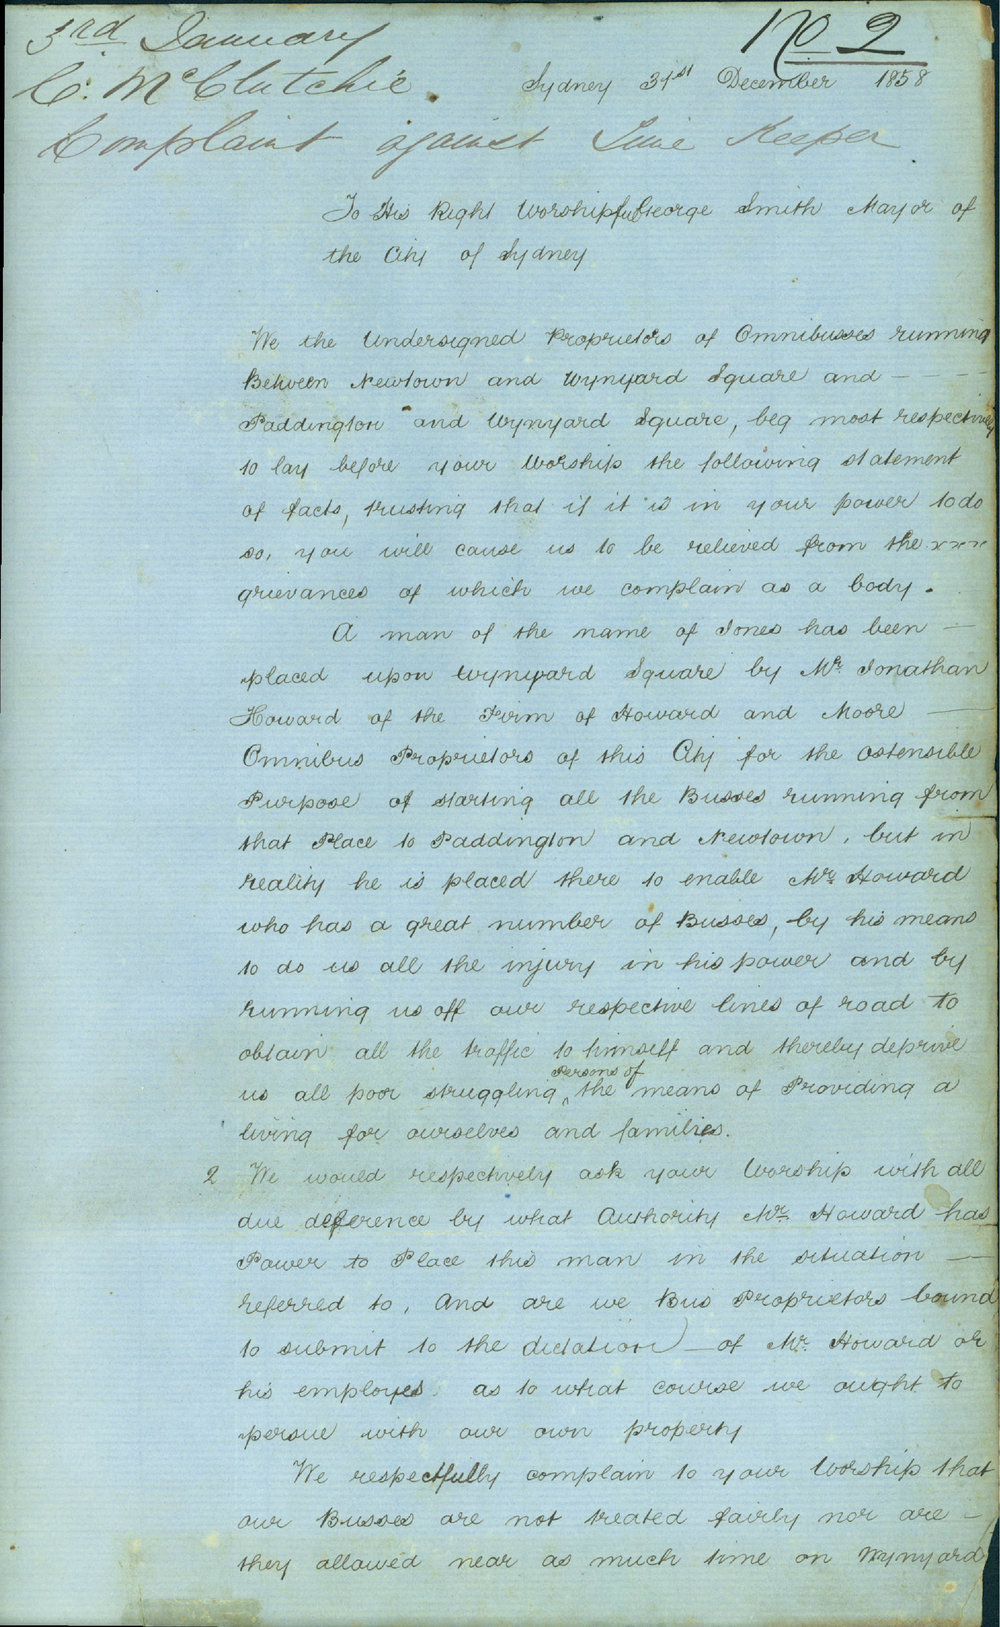 3rd January
No 2
C. McClutchie.
Sydney 31st December 1858
Complaint against Time Keeper
To His Right Worshipful George Smith Mayor of
the City of Sydney
We the Undersigned Proprietors of Omnibusses running
Between Newtown and Wynyard Square and - - - -
Paddington and Wynyard Square, beg most respectively
to lay before your Worship the following statement
of facts, trusting that if it is in your power to do
so, you will cause us to be relieved from the xxx
grievances of which we complain as a body.
A man of the name of Jones has been —
placed upon Wynyard Square by Mr. Jonathan
Howard of the Firm of Howard and Moore —
Omnibus Proprietors of this City for the ostensible
Purpose of starting all the Busses running from
that Place to Paddington and Newtown, but in
reality he is placed there to enable Mr. Howard
who has a great number of Busses, by his means
to do us all the injury in his power and by
running us off our respective lines of road to
obtain all the traffic to himself and thereby deprive
us all poor struggling Persons of the means of Providing a
living for ourselves and families.
2 We would respectively ask your Worship with all
due deference by what Authority Mr. Howard has
Power to Place this man in the situation —
referred to, And are we Bus Proprietors bound
to submit to the dictation — of Mr. Howard or
his employes as to what course we ought to
persue with our own property
We respectfully complain to your Worship that
our Busses are not treated fairly nor are -
they allowed near as much time on Wynyard